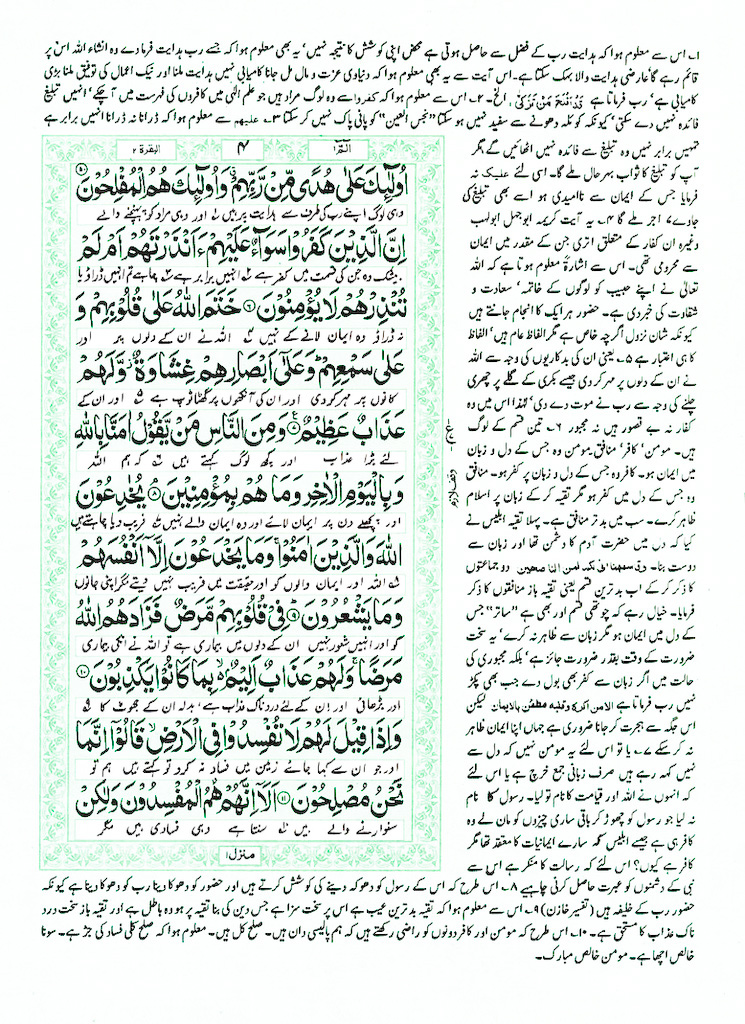 ۱۔ اس سے معلوم ہوا کہ ہدایت رب کے فضل سے حاصل ہوتی ہے محض اپنی کوشش کا نتیجہ نہیں' یہ بھی معلوم ہوا کہ جسے رب ہدایت فرما دے وہ انشاء اللہ اس پر
قائم رہے گا' عارضی ہدایت والا بہک سکتا ہے۔ اس آیت سے یہ بھی معلوم ہوا کہ دنیاوی عزت و مال مل جانا کامیابی نہیں ہدایت ملنا اور نیک اعمال کی توفیق ملنا بڑی
کامیابی ہے' رب فرماتا ہے قَدْ اَفْلَحَ مَنْ تَزَكّٰى الخ۔ ۲۔ اس سے معلوم ہوا کہ کفروا سے وہ لوگ مراد ہیں جو علم الٰہی میں کافروں کی فہرست میں آچکے' انہیں تبلیغ
فائدہ نہیں دے سکتی' کیونکہ کوئلہ دھونے سے سفید نہیں ہو سکتا "نجس العین" کو پانی پاک نہیں کر سکتا ۳۔ علیہم سے معلوم ہوا کہ ڈرانا نہ ڈرانا انہیں برابر ہے
البقرۃ ۲
۴
الٓمّٓ ۱
اُولٰٓئِكَ عَلٰى هُدًى مِّنْ رَّبِّهِمْ ۗ وَاُولٰٓئِكَ هُمُ الْمُفْلِحُوْنَ ۵
وہی لوگ اپنے رب کی طرف سے ہدایت پر ہیں ۱ اور وہی مراد کو پہنچنے والے
اِنَّ الَّذِيْنَ كَفَرُوْا سَوَآءٌ عَلَيْهِمْ ءَاَنْذَرْتَهُمْ اَمْ لَمْ
بیشک وہ جن کی قسمت میں کفر ہے ۲ انہیں برابر ہے ۳ چاہے تم انہیں ڈراؤ یا
تُنْذِرْهُمْ لَا يُؤْمِنُوْنَ ۶ خَتَمَ اللّٰهُ عَلٰى قُلُوْبِهِمْ وَ
نہ ڈراؤ وہ ایمان لانے کے نہیں ۴ اللہ نے ان کے دلوں پر اور
عَلٰى سَمْعِهِمْ ۭ وَعَلٰٓى اَبْصَارِهِمْ غِشَاوَةٌ ۡ وَّلَهُمْ
کانوں پر مہر کر دی اور ان کی آنکھوں پر گھٹا ٹوپ ہے ۵ اور ان کے
عَذَابٌ عَظِيْمٌ ۷ وَمِنَ النَّاسِ مَنْ يَّقُوْلُ اٰمَنَّا بِاللّٰهِ
لئے بڑا عذاب اور کچھ لوگ کہتے ہیں ۶ کہ ہم اللہ
وَبِالْيَوْمِ الْاٰخِرِ وَمَا هُمْ بِمُؤْمِنِيْنَ ۸ يُخٰدِعُوْنَ
اور پچھلے دن پر ایمان لائے اور وہ ایمان والے نہیں ۷ فریب دیا چاہتے ہیں
اللّٰهَ وَالَّذِيْنَ اٰمَنُوْا ۚ وَمَا يَخْدَعُوْنَ اِلَّآ اَنْفُسَهُمْ
۸ اللہ اور ایمان والوں کو اور حقیقت میں فریب نہیں دیتے مگر اپنی جانوں
وَمَا يَشْعُرُوْنَ ۹ فِيْ قُلُوْبِهِمْ مَّرَضٌ ۙ فَزَادَهُمُ اللّٰهُ
کو اور انہیں شعور نہیں ان کے دلوں میں بیماری ہے تو اللہ نے انکی بیماری
مَرَضًا ۚ وَلَهُمْ عَذَابٌ اَلِيْمٌۢ ۙ بِمَا كَانُوْا يَكْذِبُوْنَ ۱۰
اور بڑھائی اور ان کے لئے دردناک عذاب ہے' بدلہ ان کے جھوٹ کا ۹
وَاِذَا قِيْلَ لَهُمْ لَا تُفْسِدُوْا فِي الْاَرْضِ ۙ قَالُوْٓا اِنَّمَا
اور جو ان سے کہا جائے زمین میں فساد نہ کرو تو کہتے ہیں ہم تو
نَحْنُ مُصْلِحُوْنَ ۱۱ اَلَآ اِنَّهُمْ هُمُ الْمُفْسِدُوْنَ وَلٰكِنْ
سنوارنے والے ہیں ۱۰ سنتا ہے وہی فسادی ہیں مگر
منزل ۱
تمہیں برابر نہیں وہ تبلیغ سے فائدہ نہیں اٹھائیں گے مگر
آپ کو تبلیغ کا ثواب بہرحال ملے گا۔ اسی لئے علیک نہ
فرمایا جس کے ایمان سے ناامیدی ہو اسے بھی تبلیغ کی
جاوے' اجر ملے گا ۴۔ یہ آیت کریمہ ابوجہل ابولہب
وغیرہ ان کفار کے متعلق اتری جن کے مقدر میں ایمان
سے محرومی تھی۔ اس سے اشارۃً معلوم ہوتا ہے کہ اللہ
تعالیٰ نے اپنے حبیب کو لوگوں کے خاتمہ' سعادت و
شقاوت کی خبر دی ہے۔ حضور ہر ایک کا انجام جانتے ہیں
کیونکہ شان نزول اگرچہ خاص ہے مگر الفاظ عام ہیں' الفاظ
کا ہی اعتبار ہے ۵۔ یعنی ان کی بدکاریوں کی وجہ سے اللہ
نے ان کے دلوں پر مہر کر دی جیسے بکری کے گلے پر چھری
چلنے کی وجہ سے رب نے موت دے دی' لہٰذا اس میں وہ
کفار نہ بے قصور ہیں نہ مجبور ۶۔ تین قسم کے لوگ
ہیں۔ مومن' کافر' منافق۔ مومن وہ جس کے دل و زبان
میں ایمان ہو۔ کافر وہ جس کے دل و زبان پر کفر ہو۔ منافق
وہ جس کے دل میں کفر ہو مگر تقیہ کر کے زبان پر اسلام
ظاہر کرے۔ سب میں بدتر منافق ہے۔ پہلا تقیہ ابلیس نے
کیا کہ دل میں حضرت آدم کا دشمن تھا اور زبان سے
دوست بنا۔ لمن الناصحین دو جماعتوں
کا ذکر کر کے اب بدترین قسم یعنی تقیہ باز منافقوں کا ذکر
فرمایا۔ خیال رہے کہ چوتھی قسم اور بھی ہے "ساتر" جس
کے دل میں ایمان ہو مگر زبان سے ظاہر نہ کرے' یہ سخت
ضرورت کے وقت بقدر ضرورت جائز ہے' بلکہ مجبوری کی
حالت میں اگر زبان سے کفر بھی بول دے جب بھی پکڑ
نہیں رب فرماتا ہے الا من اکرہ وقلبہ مطمئن بالایمان لیکن
اس جگہ سے ہجرت کر جانا ضروری ہے جہاں اپنا ایمان ظاہر
نہ کر سکے ۷۔ یا تو اس لئے یہ مومن نہیں کہ دل سے
نہیں کہہ رہے ہیں صرف زبانی جمع خرچ ہے یا اس لئے
کہ انہوں نے اللہ اور قیامت کا نام تو لیا۔ رسول کا نام
نہ لیا جو رسول کو چھوڑ کر باقی ساری چیزوں کو مان لے وہ
کافر ہی ہے جیسے ابلیس کہ سارے ایمانیات کا معتقد تھا مگر
کافر ہے کیوں؟ اس لئے کہ رسالت کا منکر ہے اس سے
نبی کے دشمنوں کو عبرت حاصل کرنی چاہیے ۸۔ اس طرح کہ اس کے رسول کو دھوکہ دینے کی کوشش کرتے ہیں اور حضور کو دھوکا دینا رب کو دھوکا دینا ہے کیونکہ
حضور رب کے خلیفہ ہیں (تفسیر خازن) ۹۔ اس سے معلوم ہوا کہ تقیہ بدترین عیب ہے اس پر سخت سزا ہے جس دین کی بنا تقیہ پر ہو وہ باطل ہے اور تقیہ باز سخت درد
ناک عذاب کا مستحق ہے۔ ۱۰۔ اس طرح کہ مومن اور کافر دونوں کو راضی رکھتے ہیں کہ ہم پالیسی دان ہیں۔ صلح کل ہیں۔ معلوم ہوا کہ صلح کلی فساد کی جڑ ہے۔ سونا
خالص اچھا ہے۔ مومن خالص مبارک۔